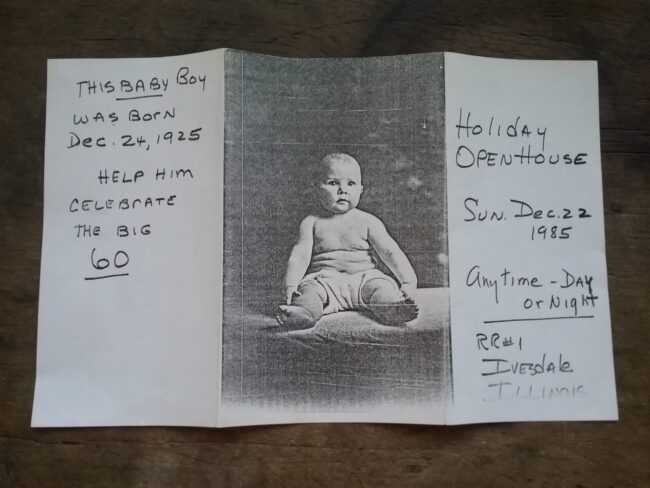 THIS BABY Boy
WAS BORN
Dec. 24, 1925
HELP HIM
CELEBRATE
THE BIG
60
Holiday
OPEN HOUSE
Sun. Dec. 22
1985
Anytime - Day
or Night
RR#1
Ivesdale
ILLINOIS